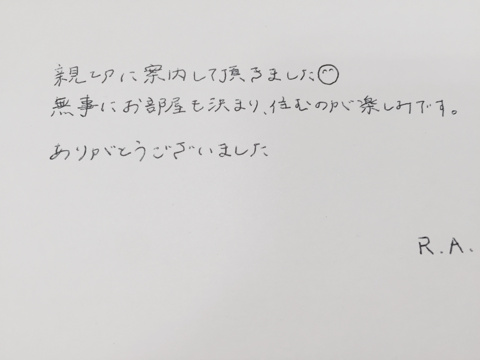 親切に案内して頂きました☺
無事にお部屋も決まり、住むのが楽しみです。
ありがとうございました
R.A.